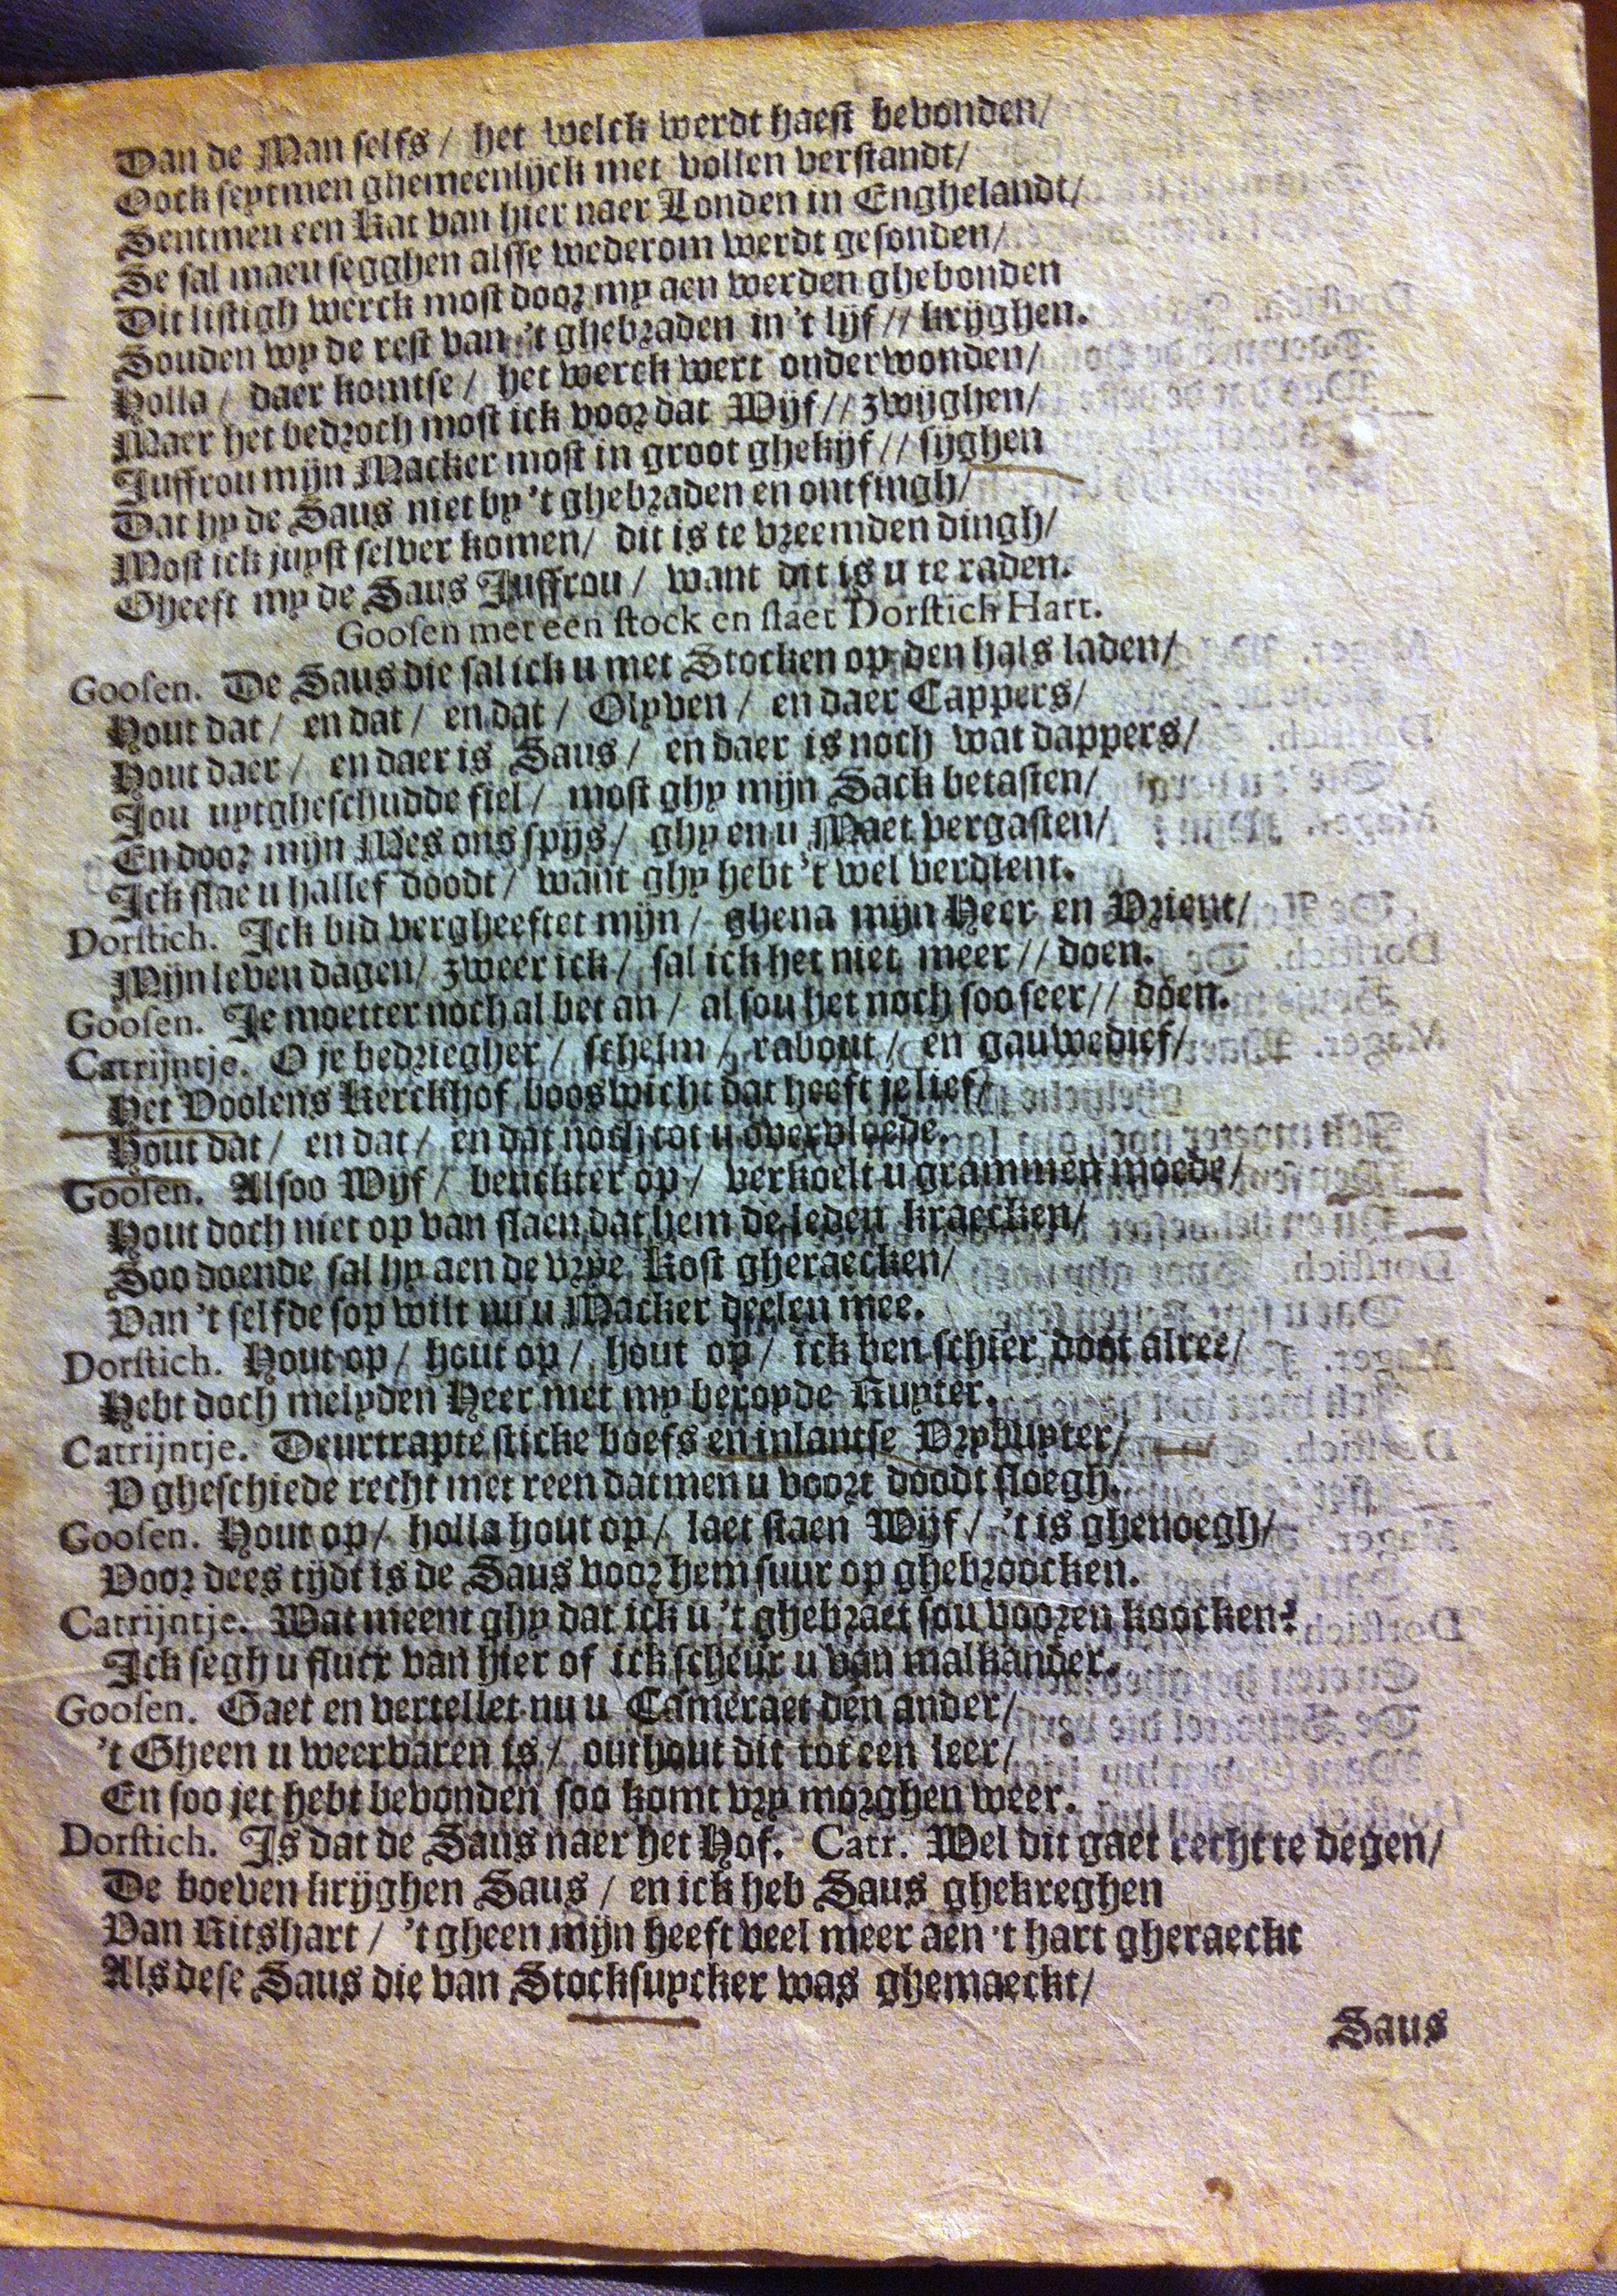 Dan de Man selfs / het welck werdt haest bevonden /
Oock seytmen ghemeenlijck met vollen verstandt /
Sentmen een Kat van hier naer Londen in Enghelandt /
Se sal maeu segghen alsse wederom werdt gesonden /
Dit listigh werck most door my aen werden ghebonden
Souden wy de rest van 't ghebraden in 't lijf // krijghen.
Holla / daer komtse / het werck wert onderwonden /
Maer het bedroch most ick voor dat Wijf // zwijghen /
Juffrou mijn Macker most in groot ghekijf // sijghen
Dat hy de Saus niet by 't ghebraden en ontfingh /
Most ick juyst selver komen / dit is te vreemden dingh /
Gheeft my de Saus Juffrou / want dit is u te raden.
Goosen met een stock en slaet Dorstich Hart.
Goosen. De Saus die sal ick u met Stocken op den hals laden /
Hout dat / en dat / en dat / Olyven / en daer Cappers /
Hout daer / en daer is Saus / en daer is noch wat dappers /
Jou uytgheschudde fiel / most ghy mijn Sack betasten /
En door mijn Mes ons spijs / ghy en u Maet vergasten /
Ick slae u hallef doodt / want ghy hebt 't wel verdient.
Dorstich. Ick bid vergheeftet mijn / ghena mijn Heer en Vrient /
Mijn leven dagen / zweer ick / sal ick het niet meer // doen.
Goosen. Je moetter noch al bet an / al sou het noch soo seer // doen.
Catrijntje. O je bedriegher / schelm / rabout / en gauwedief /
Het Voolens Kerckhof booswicht dat heeft je lief /
Hout dat / en dat / en dat noch tot u overvloede.
Goosen. Alsoo Wijf / betickter op / verkoelt u grammen moede /
Hout doch niet op van slaen dat hem de leden kraecken /
Soo doende sal hy aen de vrye Kost gheraecken /
Van 't selfde sop wilt nu u Macker deelen mee.
Dorstich. Hout op / hout op / hout op / ick ben schier doot alree /
Hebt doch melyden Heer met my beroyde Ruyter.
Catrijntje. Deurtrapte sticke boefs en inlantse Vrybuyter /
V gheschiede recht met reen datmen u voort doodt sloegh.
Goosen. Hout op / holla hout op / laet staen Wijf / 't is ghenoegh /
Voor dees tijdt is de Saus voor hem suur op ghebroocken.
Catrijntje. Wat meent ghy dat ick u 't ghebraet sou vooren koocken?
Ick segh u fluex van hier of ick scheur u van malkander.
Goosen. Gaet en vertellet nu u Cameraet den ander /
't Gheen u weervaren is / onthout dit tot een leer /
En soo jet hebt bevonden soo komt vry morghen weer.
Dorstich. Is dat de Saus naer het Hof. Catr. Wel dit gaet recht te degen /
De boeven krijghen Saus / en ick heb Saus ghekreghen
Van Ritshart / 't gheen mijn heeft veel meer aen 't hart gheraeckt
Als dese Saus die van Stocksuycker was ghemaeckt /
Saus